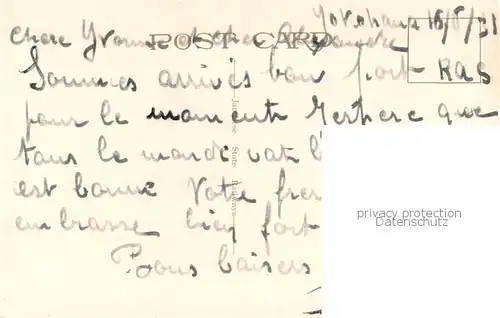 Yokohama 16/5/31
Chere Yvonne et cher Alexandre
POST CARD
Sommes arrivés bon port RAS
pour le moment J'espere que
tous le monde vat
est bonne Votre frere
embrasse bien fort
Bons baisers
Japanese State Railways
privacy protection
Datenschutz